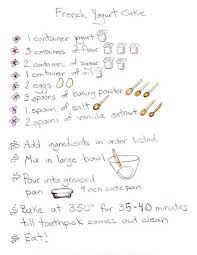 French Yogurt Cake
1 container yogurt
3 containers of flour
2 containers of sugar
1 container of oil
2 eggs
3 spoons of baking powder
1 spoon of salt
2 spoons of vanilla extract
Add ingredients in order listed
Mix in large bowl
Pour into greased
pan 9 inch cake pan
Bake at 350° for 35-40 minutes
till toothpick comes out clean
Eat!